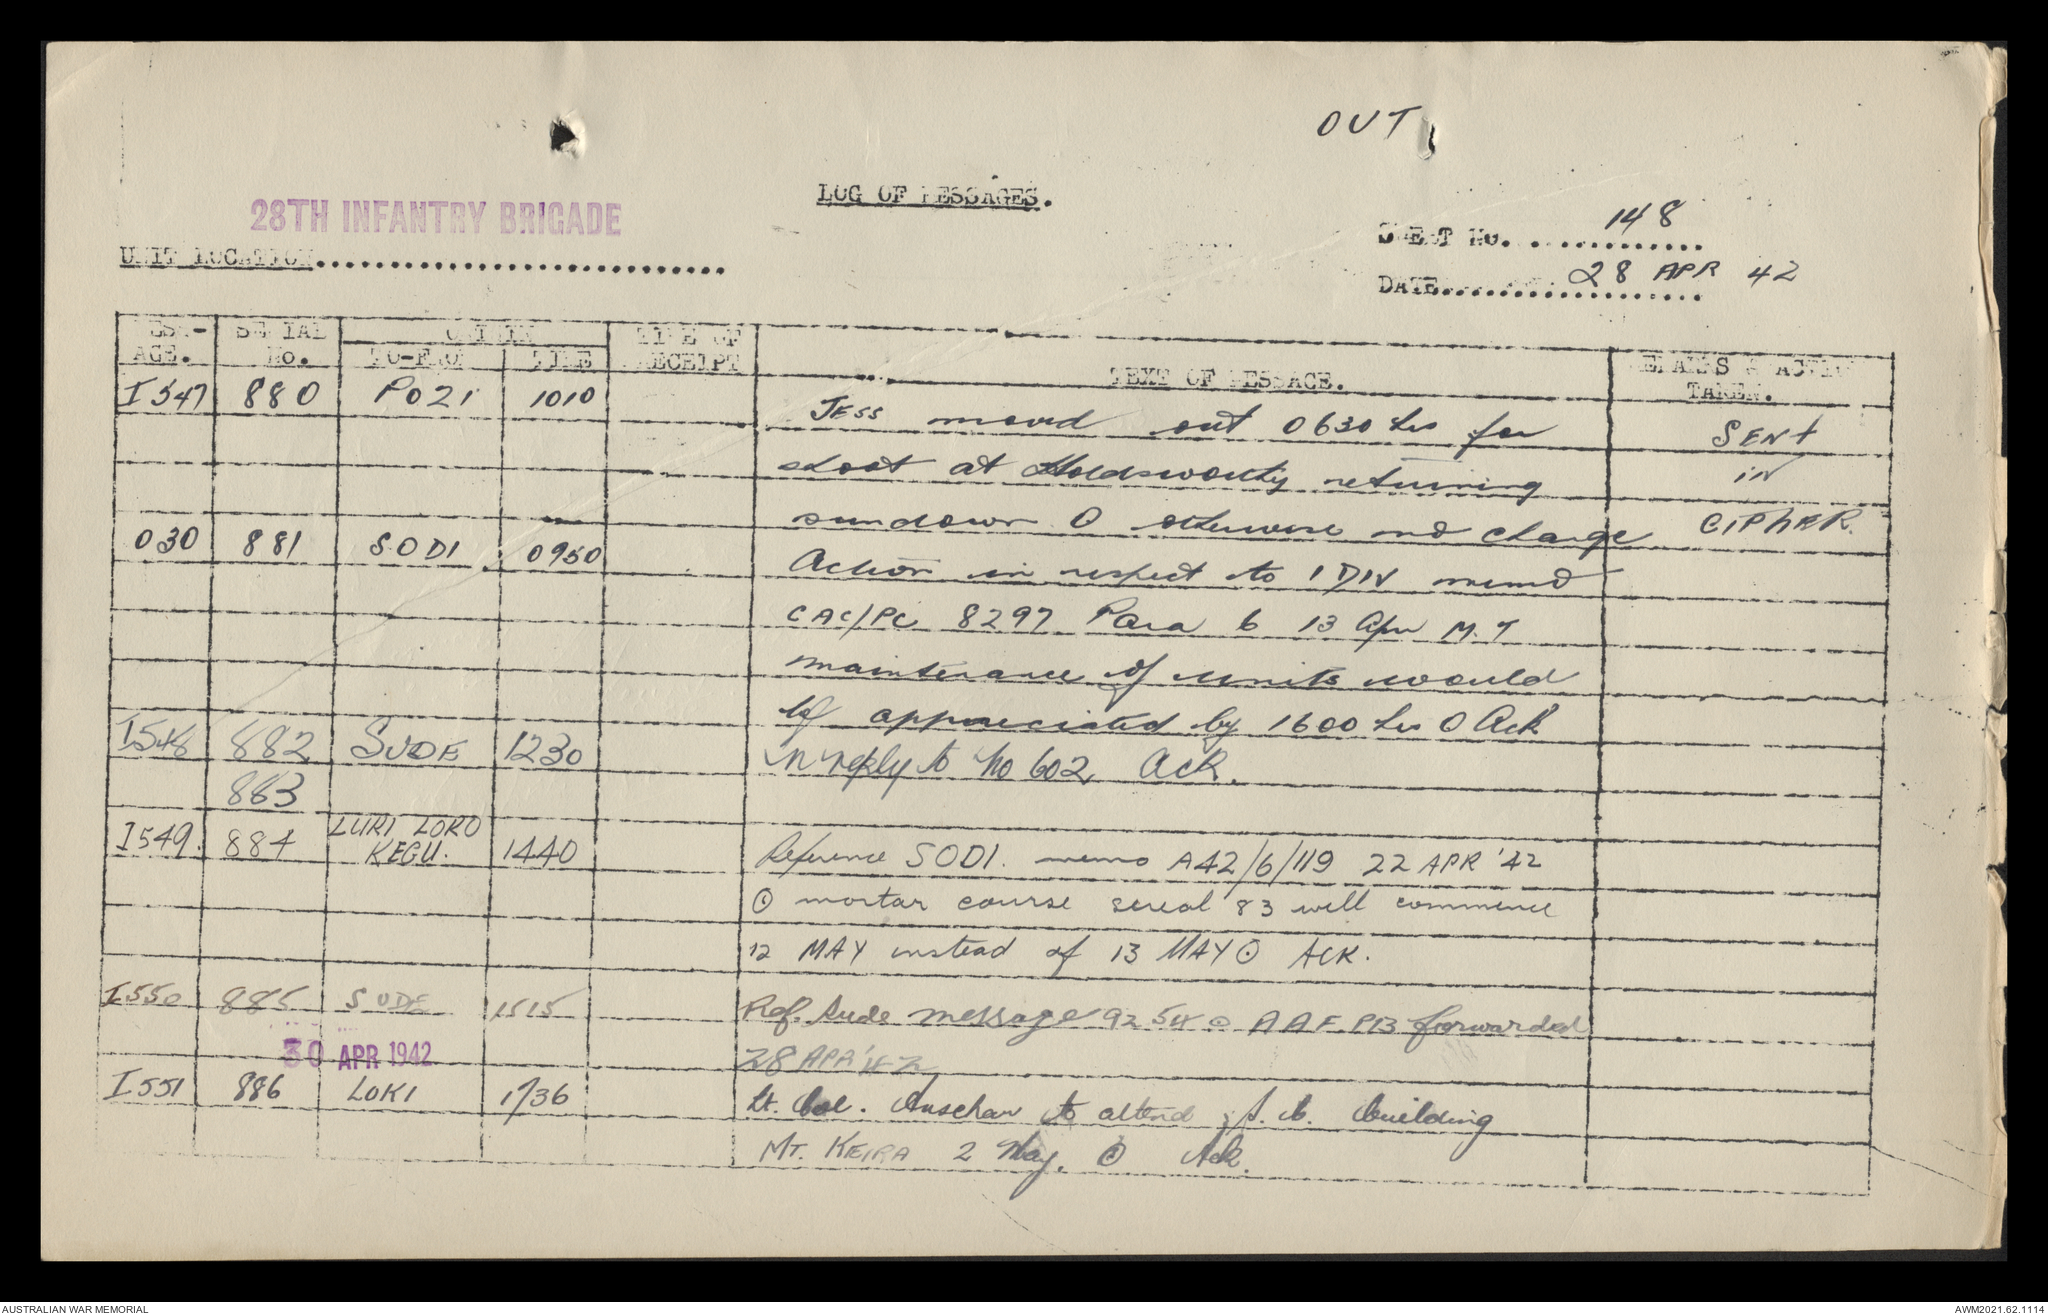 OUT
LOG OF MESSAGES.
28TH INFANTRY BRIGADE
SHEET NO. ............. 148
UNIT LOCATION..............................
DATE.................... 28 APR 42
MESS-AGE. SERIAL No. ORIGIN TO-FROM TIME TIME OF RECEIPT TEXT OF MESSAGE. REMARKS & ACTION TAKEN.
I 547 880 POZI 1010 JESS moved out 0630 hrs for SENT
shoot at Holdsworthy returning IN
sundown O otherwise no change CIPHER.
030 881 SODI 0950 Action in respect to 1 DIV memo
CAC/PC 8297 Para 6 13 Apr M.T
maintenance of units would
be appreciated by 1600 hrs O Ack
I548 882 SUDE 1230 In reply to No 602 Ack.
883
I549. 884 LURI LOKO
KEGU. 1440 Reference SODI. memo A42/6/119 22 APR '42
⊙ mortar course sereal 83 will commence
12 MAY instead of 13 MAY ⊙ ACK.
I550 885 SUDE 1515 Ref. Sude message 9254 ⊙ AAF P13 forwarded
28 APR '42
30 APR 1942
I551 886 LOKI 1736 Lt. Col. to attend building
MT. KEIRA 2 May. ⊙ Ack.
AUSTRALIAN WAR MEMORIAL
AWM2021.62.1114